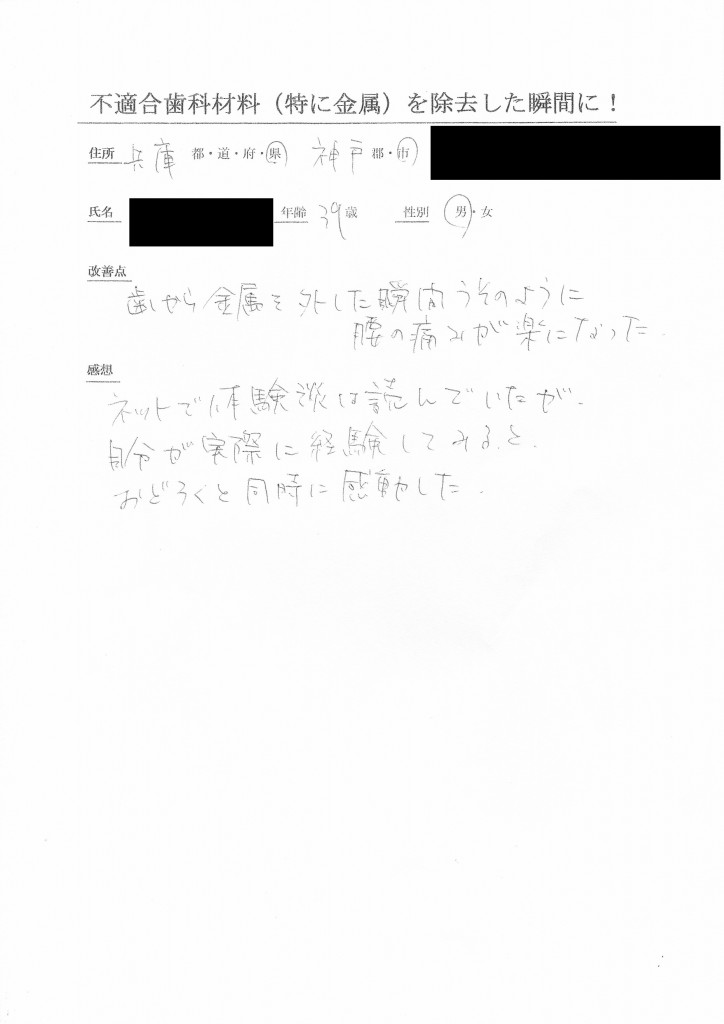 不適合歯科材料（特に金属）を除去した瞬間に！
住所 兵庫 都・道・府・県 神戸 郡・市
氏名 年齢 39 歳 性別 男・女
改善点
歯から金属を外した瞬間うそのように
腰の痛みが楽になった.
感想
ネットで体験談は読んでいたが、
自分が実際に経験してみると、
おどろくと同時に感動した.